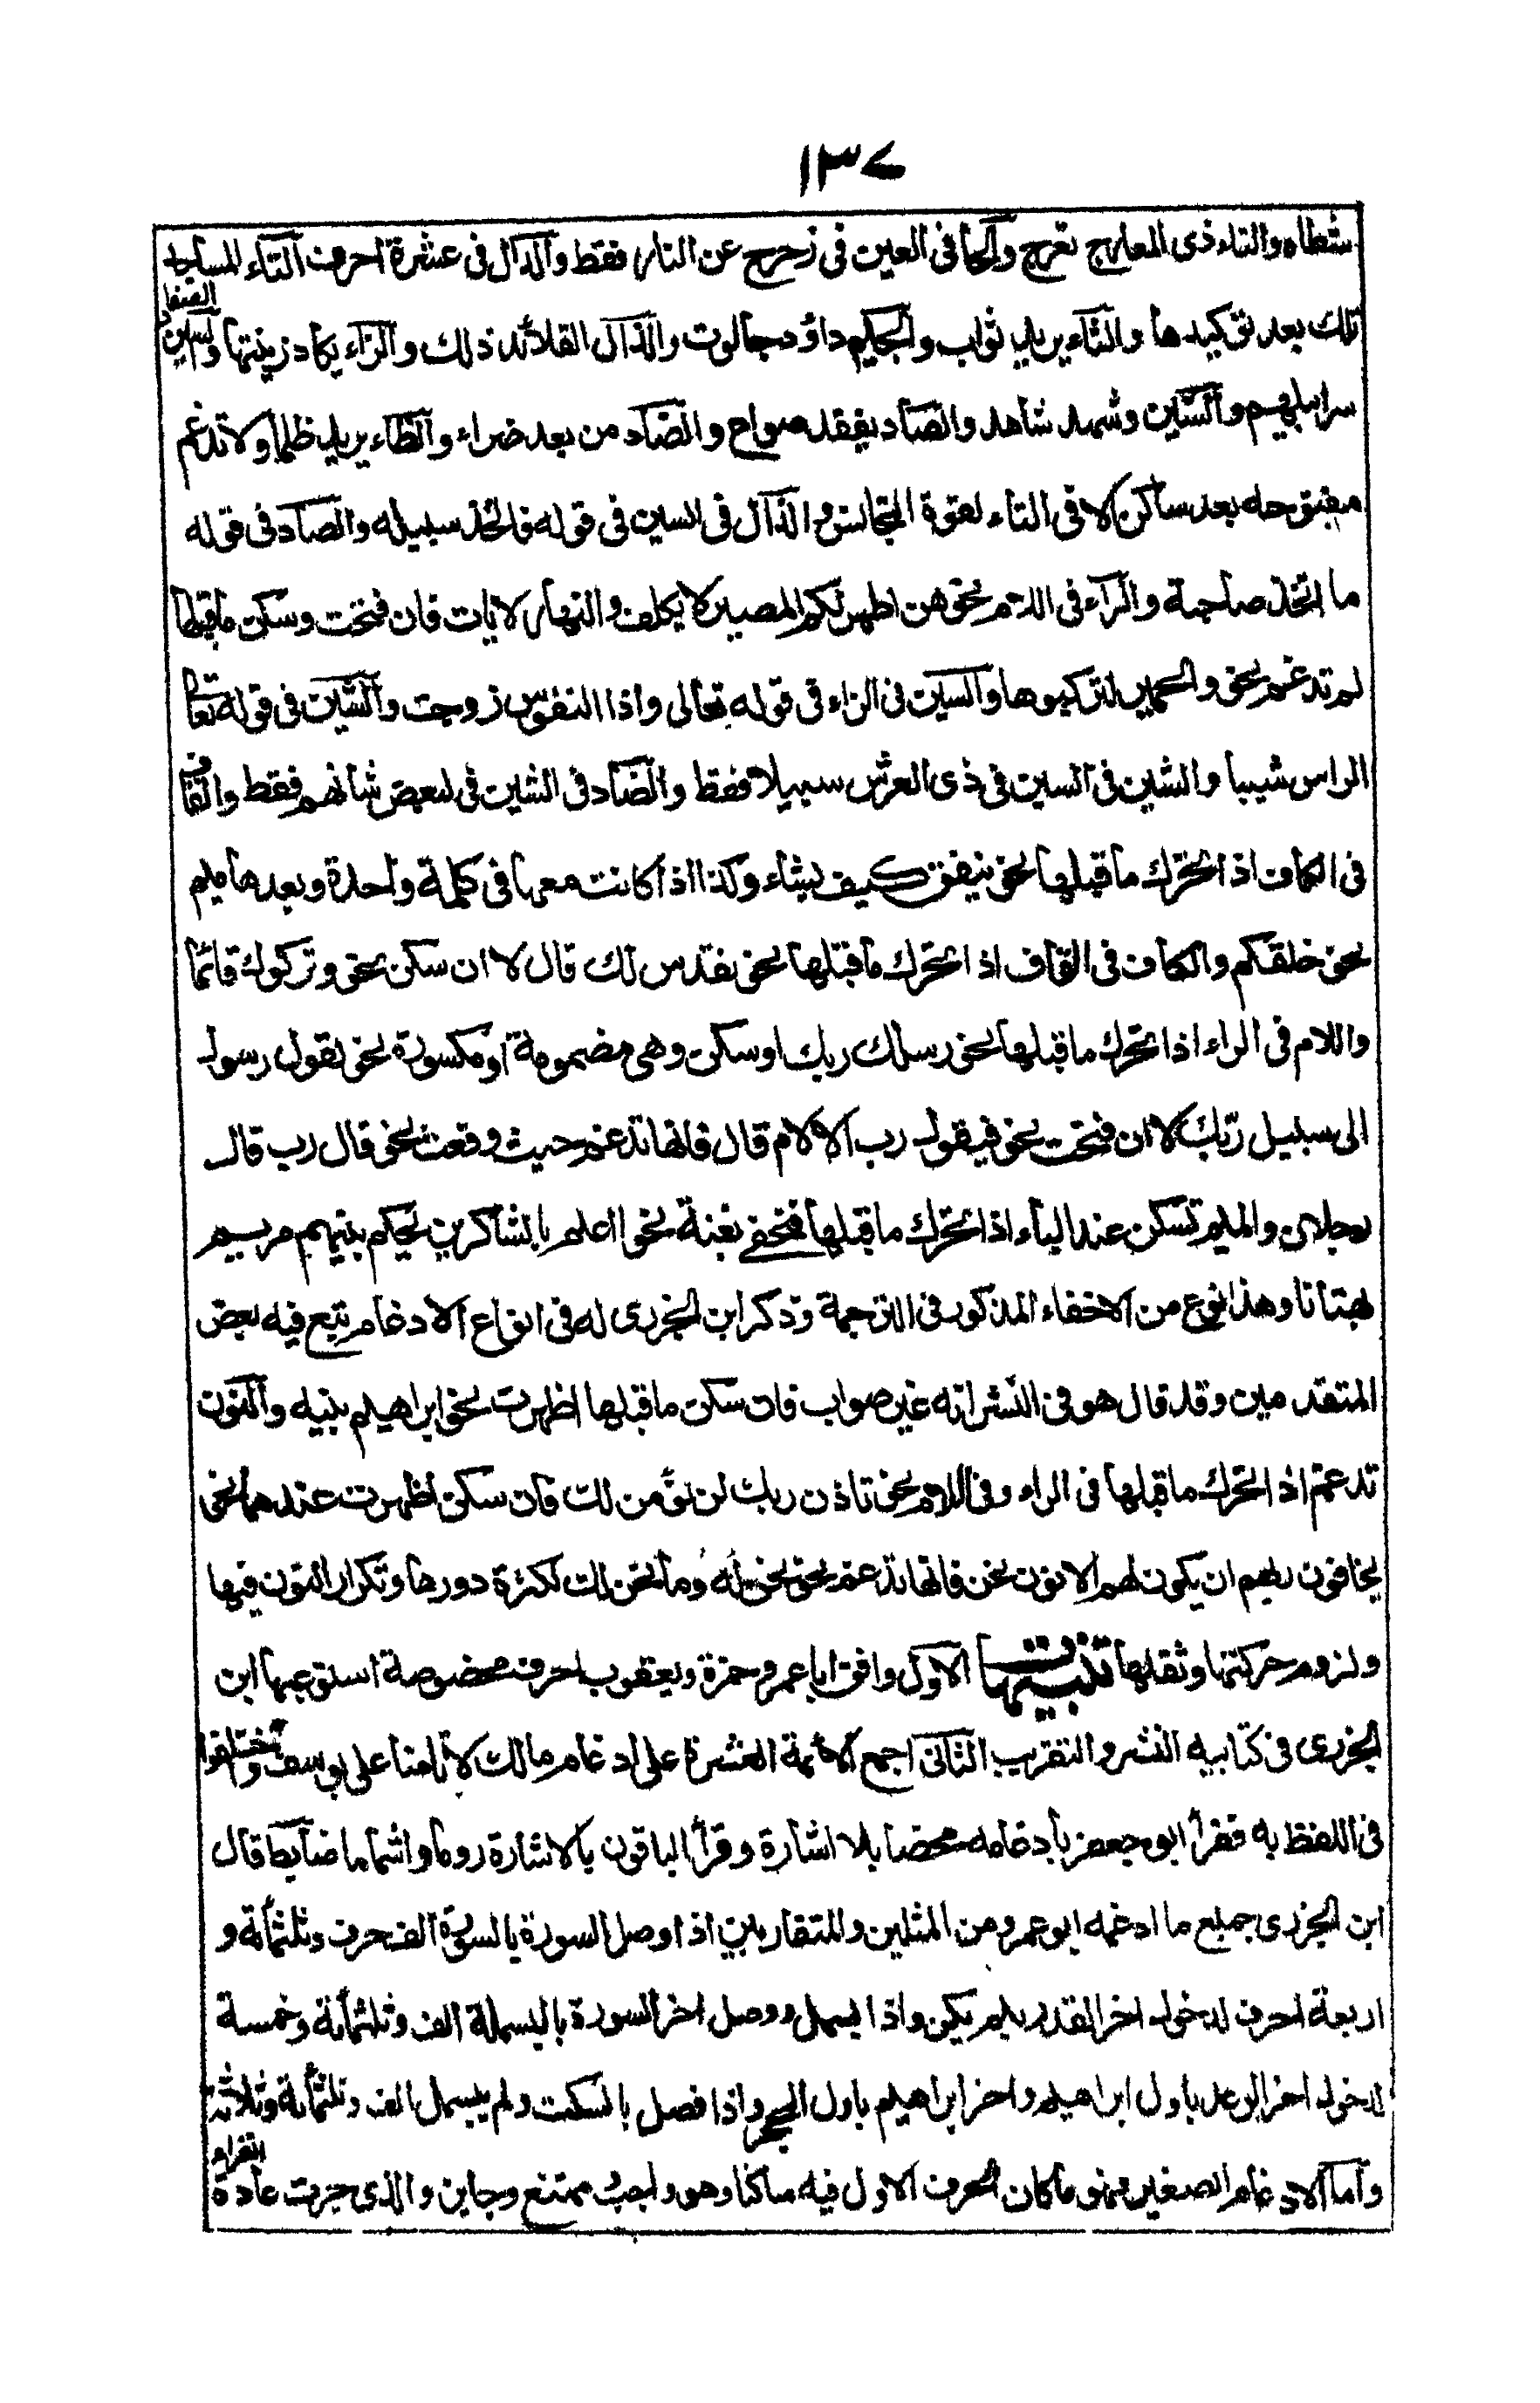 ١٣٧
شطاه والتاء ذى المعارج تعرج والحا فى العين فى زحزح عن النار فقط والدال فى عشرة احرف التاء المساجد
تلك بعد توكيدها والثاء يريد ثواب والجيم داؤد جالوت والذال القلائد ذلك والزاء يكاد زيتها والسين الاصفاد
سرابيلهم والشين وشهد شاهد والصاد يفقد صواع والضاد من بعد ضراء والظاء يريد ظلما ولا تدغم
مفتوحه بعد ساكن الا فى التاء لقوة التجانس والذال فى السين فى قوله فاتخذ سبيله والصاد فى قوله
ما اتخذ صاحبة والراء فى اللام نحو هن اطهر لكم المصير لا يكلف والنهار لايات فان فتحت وسكن ما قبلها
لم تدغم نحو والحمير لتركبوها والسين فى الزاء فى قوله تعالى واذا النفوس زوجت والشين فى قوله تعالى
الراس شيبا والشين فى السين فى ذى العرش سبيلا فقط والضاد فى الشين فى لبعض شانهم فقط والقاف
فى الكاف اذا تحرك ما قبلها نحو ينفق كيف يشاء وكذا اذا كانت معها فى كلمة واحدة وبعدها ميم
نحو خلقكم والكاف فى القاف اذا تحرك ما قبلها نحو نقدس لك قال لا ان سكن نحو وتركوك قائما
واللام فى الراء اذا تحرك ما قبلها نحو رسل ربك او سكن وهى مضمومة او مكسورة نحو لقول رسول
الى سبيل ربك لا ان فتحت نحو فيقول رب الا لام قال فانها تدغم حيث وقعت نحو قال رب قال
رجلان والميم تسكن عند الباء اذا تحرك ما قبلها فتخفى بغنة نحو اعلم بالشاكرين يحكم بينهم مريم
بهتانا وهذا نوع من الاخفاء المذكور فى الترجمة وذكر ابن الجزرى له فى انواع الادغام تبع فيه بعض
المتقدمين وقد قال هو فى النشر انه غير صواب فان سكن ما قبلها اظهرت نحو ابراهيم بنيه والنون
تدغم اذا تحرك ما قبلها فى الراء وفى اللام نحو تاذن ربك لن نؤمن لك فان سكن اظهرت عندهما نحو
يخافون ربهم ان يكون لهم الا نون نحن فانها تدغم نحو نحن له وما نحن لك لكثرة دورها وتكرار النون فيها
ولزوم حركتها وثقلها تنبيهان الاول وافق ابا عمرو حمزة ويعقوب احرف مخصوصة استوعبها ابن
الجزرى فى كتابيه النشر والتقريب الثانى اجمع الائمة العشرة على ادغام مالك لا تامنا على يوسف واختلفوا
فى اللفظ به فقرأ ابو جعفر بادغامه محضا بلا اشارة وقرأ الباقون بالاشارة روما واشماما ضابط قال
ابن الجزرى جميع ما ادغمه ابو عمرو من المثلين والمتقاربين اذا وصل السورة بالسورة الف حرف وثلثمائة و
اربعة احرف لدخول اخر القدر بلم يكن واذا بسمل ووصل اخر السورة بالبسملة الف وثلثمائة وخمسة
لدخول اخر الرعد باول ابراهيم واخر ابراهيم باول الحجر واذا فصل بالسكت ولم يبسمل الف وثلثمائة وثلاثة
واما الادغام الصغير فهو ما كان الحرف الاول فيه ساكنا وهو واجب وممتنع وجايز والذى جرت عادة القراء